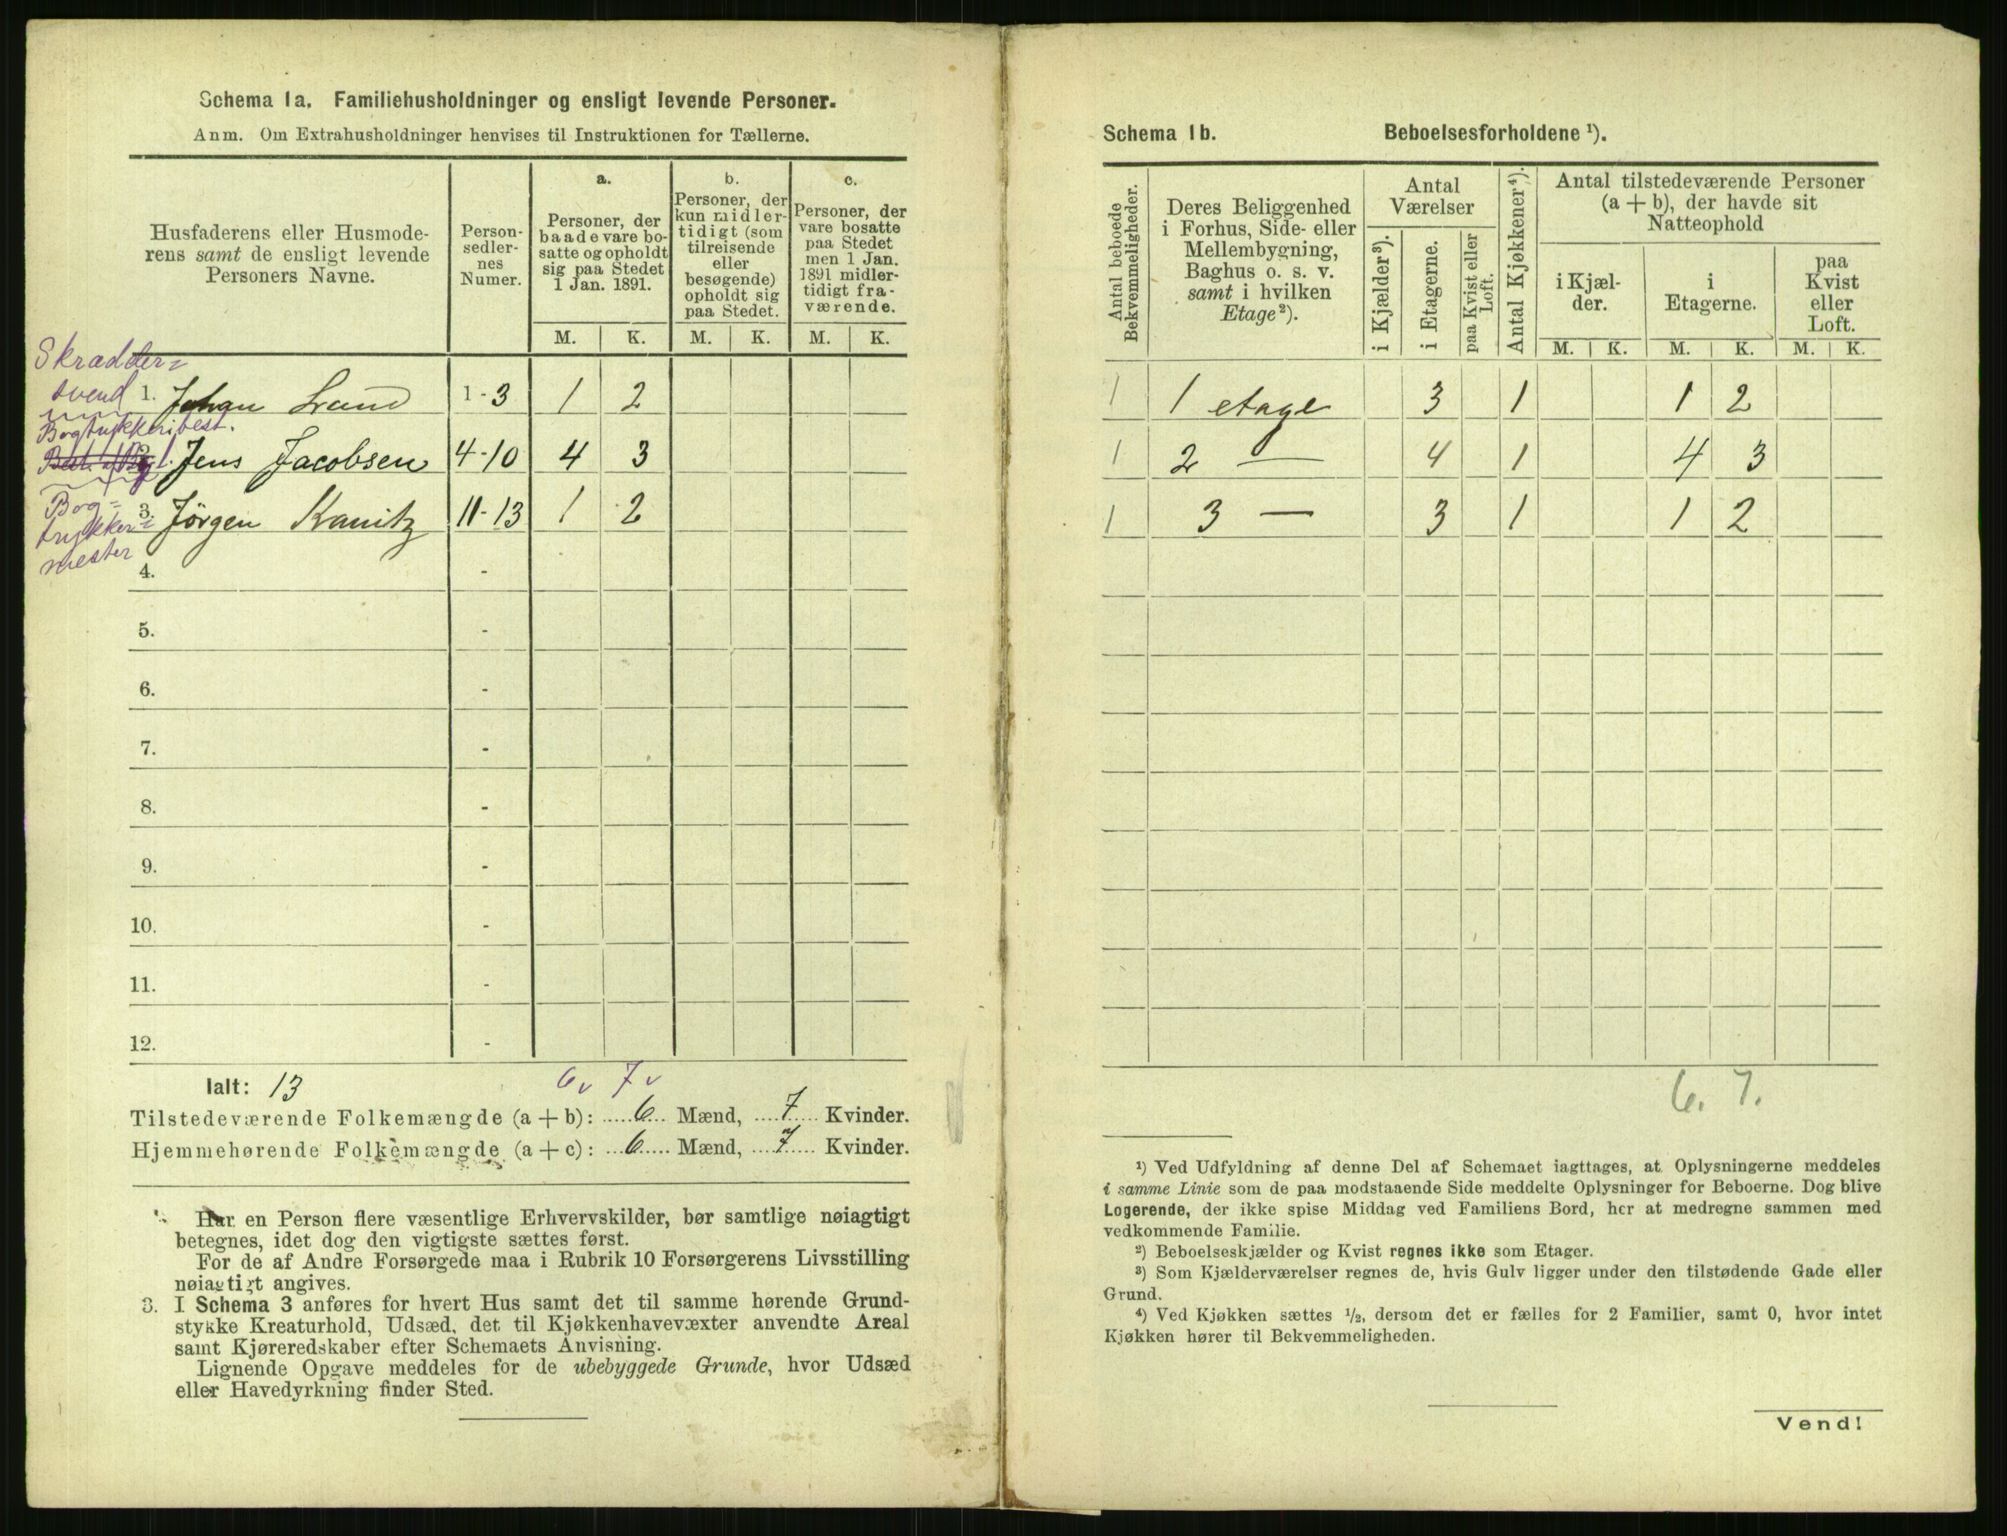 Schema 1a. Familiehusholdninger og ensligt levende Personer.
Anm. Om Extrahusholdninger henvises til Instruktionen for Tællerne.
Husfaderens eller Husmode-
rens samt de ensligt levende
Personers Navne.
Person-
sedler-
nes
Numer.
a.
Personer, der
baade vare bo-
satte og opholdt
sig paa Stedet
1 Jan. 1891.
b.
Personer, der
kun midler-
tidigt (som
tilreisende
eller
besøgende)
opholdt sig
paa Stedet.
c.
Personer, der
vare bosatte
paa Stedet
men 1 Jan.
1891 midler-
tidigt fra-
værende.
M. K. M. K. M. K.
Skrædder=
svend
1. Johan Lund 1-3 1 2
Bogtrykkeribest.
2. Jens Jacobsen 4-10 4 3
Bog=
trykker=
mester
3. Jörgen Kanitz 11-13 1 2
4. -
5. -
6. -
7. -
8. -
9. -
10. -
11. -
12. -
6 v 7 v
Ialt: 13
Tilstedeværende Folkemængde (a + b): 6 Mænd, 7 Kvinder.
Hjemmehørende Folkemængde (a + c): 6 Mænd, 7 Kvinder.
Har en Person flere væsentlige Erhvervskilder, bør samtlige nøiagtigt
betegnes, idet dog den vigtigste sættes først.
For de af Andre Forsørgede maa i Rubrik 10 Forsørgerens Livsstilling
nøiagtigt angives.
3. I Schema 3 anføres for hvert Hus samt det til samme hørende Grund-
stykke Kreaturhold, Udsæd, det til Kjøkkenhavevæxter anvendte Areal
samt Kjøreredskaber efter Schemaets Anvisning.
Lignende Opgave meddeles for de ubebyggede Grunde, hvor Udsæd
eller Havedyrkning finder Sted.
Schema 1b. Beboelsesforholdene ¹).
Antal beboede
Bekvemmeligheder.
Deres Beliggenhed
i Forhus, Side- eller
Mellembygning,
Baghus o. s. v.
samt i hvilken
Etage²).
Antal
Værelser
i Kjælder³).
i Etagerne.
paa Kvist eller
Loft.
Antal Kjøkkener⁴).
Antal tilstedeværende Personer
(a + b), der havde sit
Natteophold
i Kjæl-
der.
i
Etagerne.
paa
Kvist
eller
Loft.
M. K. M. K. M. K.
1 1 etage 3 1 1 2
1 2 — 4 1 4 3
1 3 — 3 1 1 2
6. 7.
¹) Ved Udfyldning af denne Del af Schemaet iagttages, at Oplysningerne meddeles
i samme Linie som de paa modstaaende Side meddelte Oplysninger for Beboerne. Dog blive
Logerende, der ikke spise Middag ved Familiens Bord, her at medregne sammen med
vedkommende Familie.
²) Beboelseskjælder og Kvist regnes ikke som Etager.
³) Som Kjælderværelser regnes de, hvis Gulv ligger under den tilstødende Gade eller
Grund.
⁴) Ved Kjøkken sættes ½, dersom det er fælles for 2 Familier, samt 0, hvor intet
Kjøkken hører til Bekvemmeligheden.
Vend!